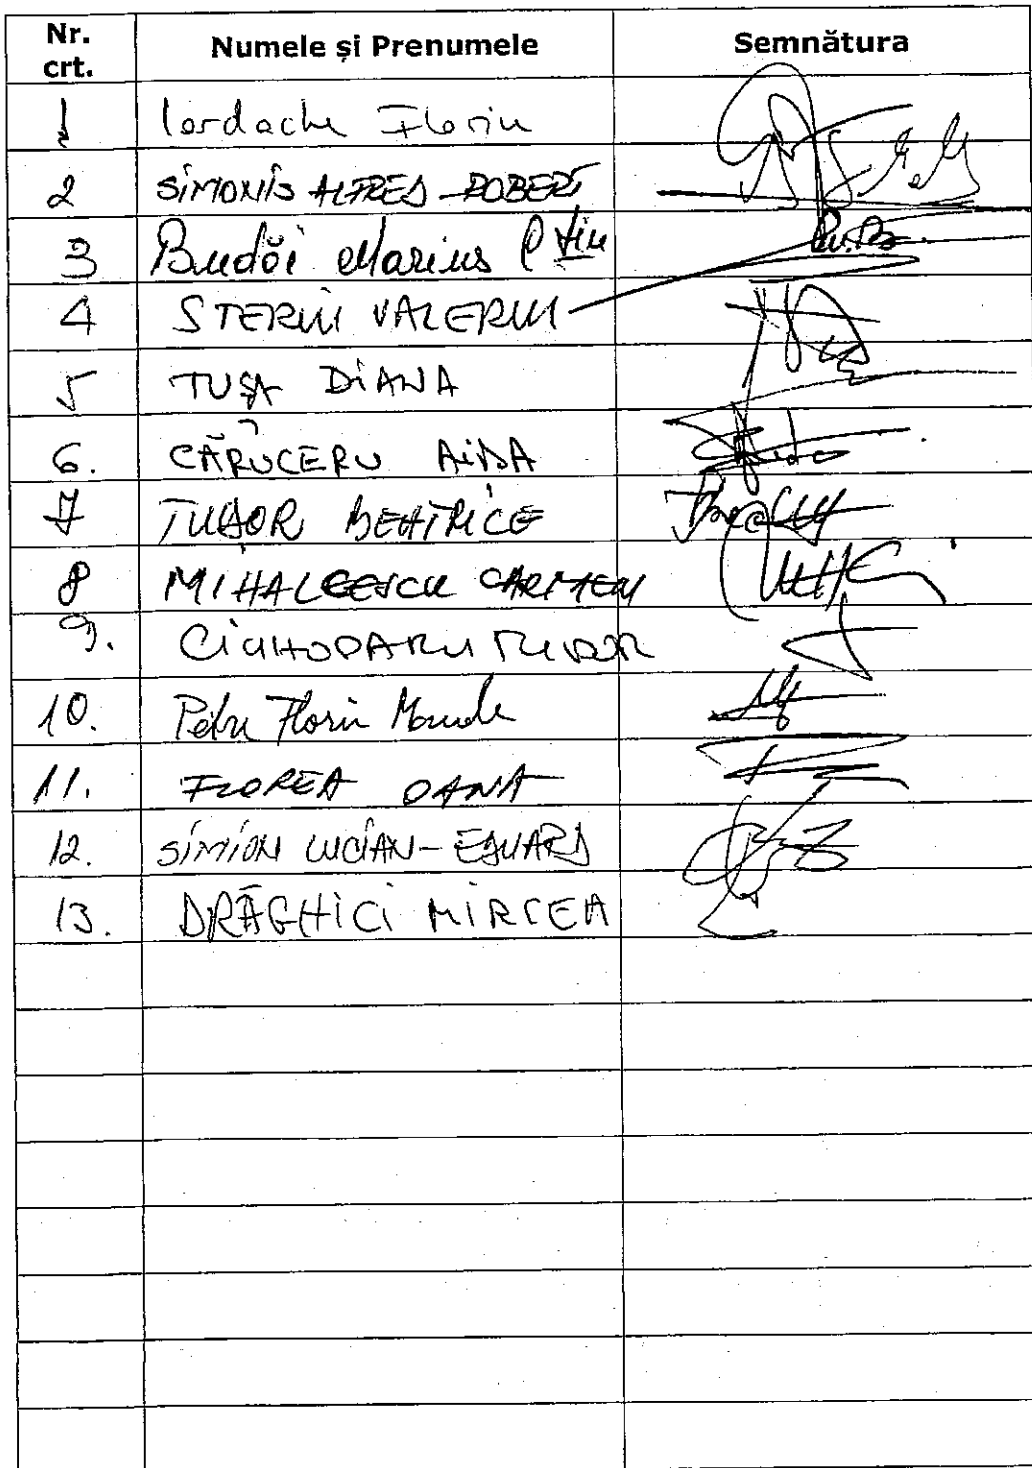 Nr. crt. Numele și Prenumele Semnătura
1 Iordache Florin
2 SIMONIS ALFRED-ROBERT
3 Budăi Marius C-tin
4 STERIU VALERIU
5 TUȘA DIANA
6. CĂRUCERU AIDA
7 TUDOR BEATRICE
8 MIHALCESCU CARMEN
9. CIUHODARU TUDOR
10. Petru Florin Manole
11. FLOREA OANA
12. SIMION LUCIAN-EDUARD
13. DRĂGHICI MIRCEA